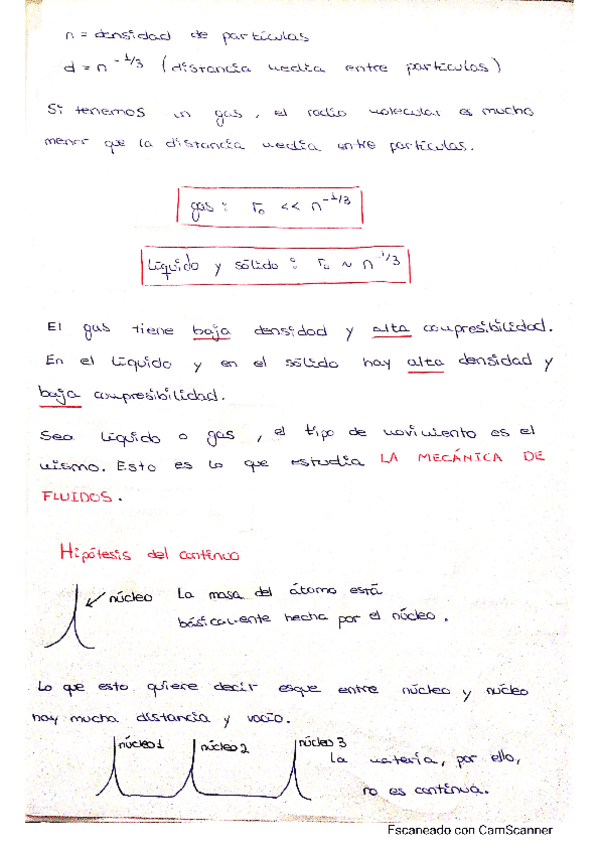 n = densidad de partículas
d = n^-1/3 (distancia media entre partículas)
Si tenemos un gas, el radio molecular es mucho
menor que la distancia media entre partículas.
gas: r₀ << n^-1/3
Líquido y sólido: r₀ ~ n^-1/3
El gas tiene baja densidad y alta compresibilidad.
En el líquido y en el sólido hay alta densidad y
baja compresibilidad.
Sea líquido o gas, el tipo de movimiento es el
mismo. Esto es lo que estudia LA MECÁNICA DE
FLUIDOS.
Hipótesis del continuo
núcleo La masa del átomo está
básicamente hecha por el núcleo.
Lo que esto quiere decir esque entre núcleo y núcleo
hay mucha distancia y vacío.
núcleo 1 núcleo 2 núcleo 3
La materia, por ello,
no es continua.
Escaneado con CamScanner